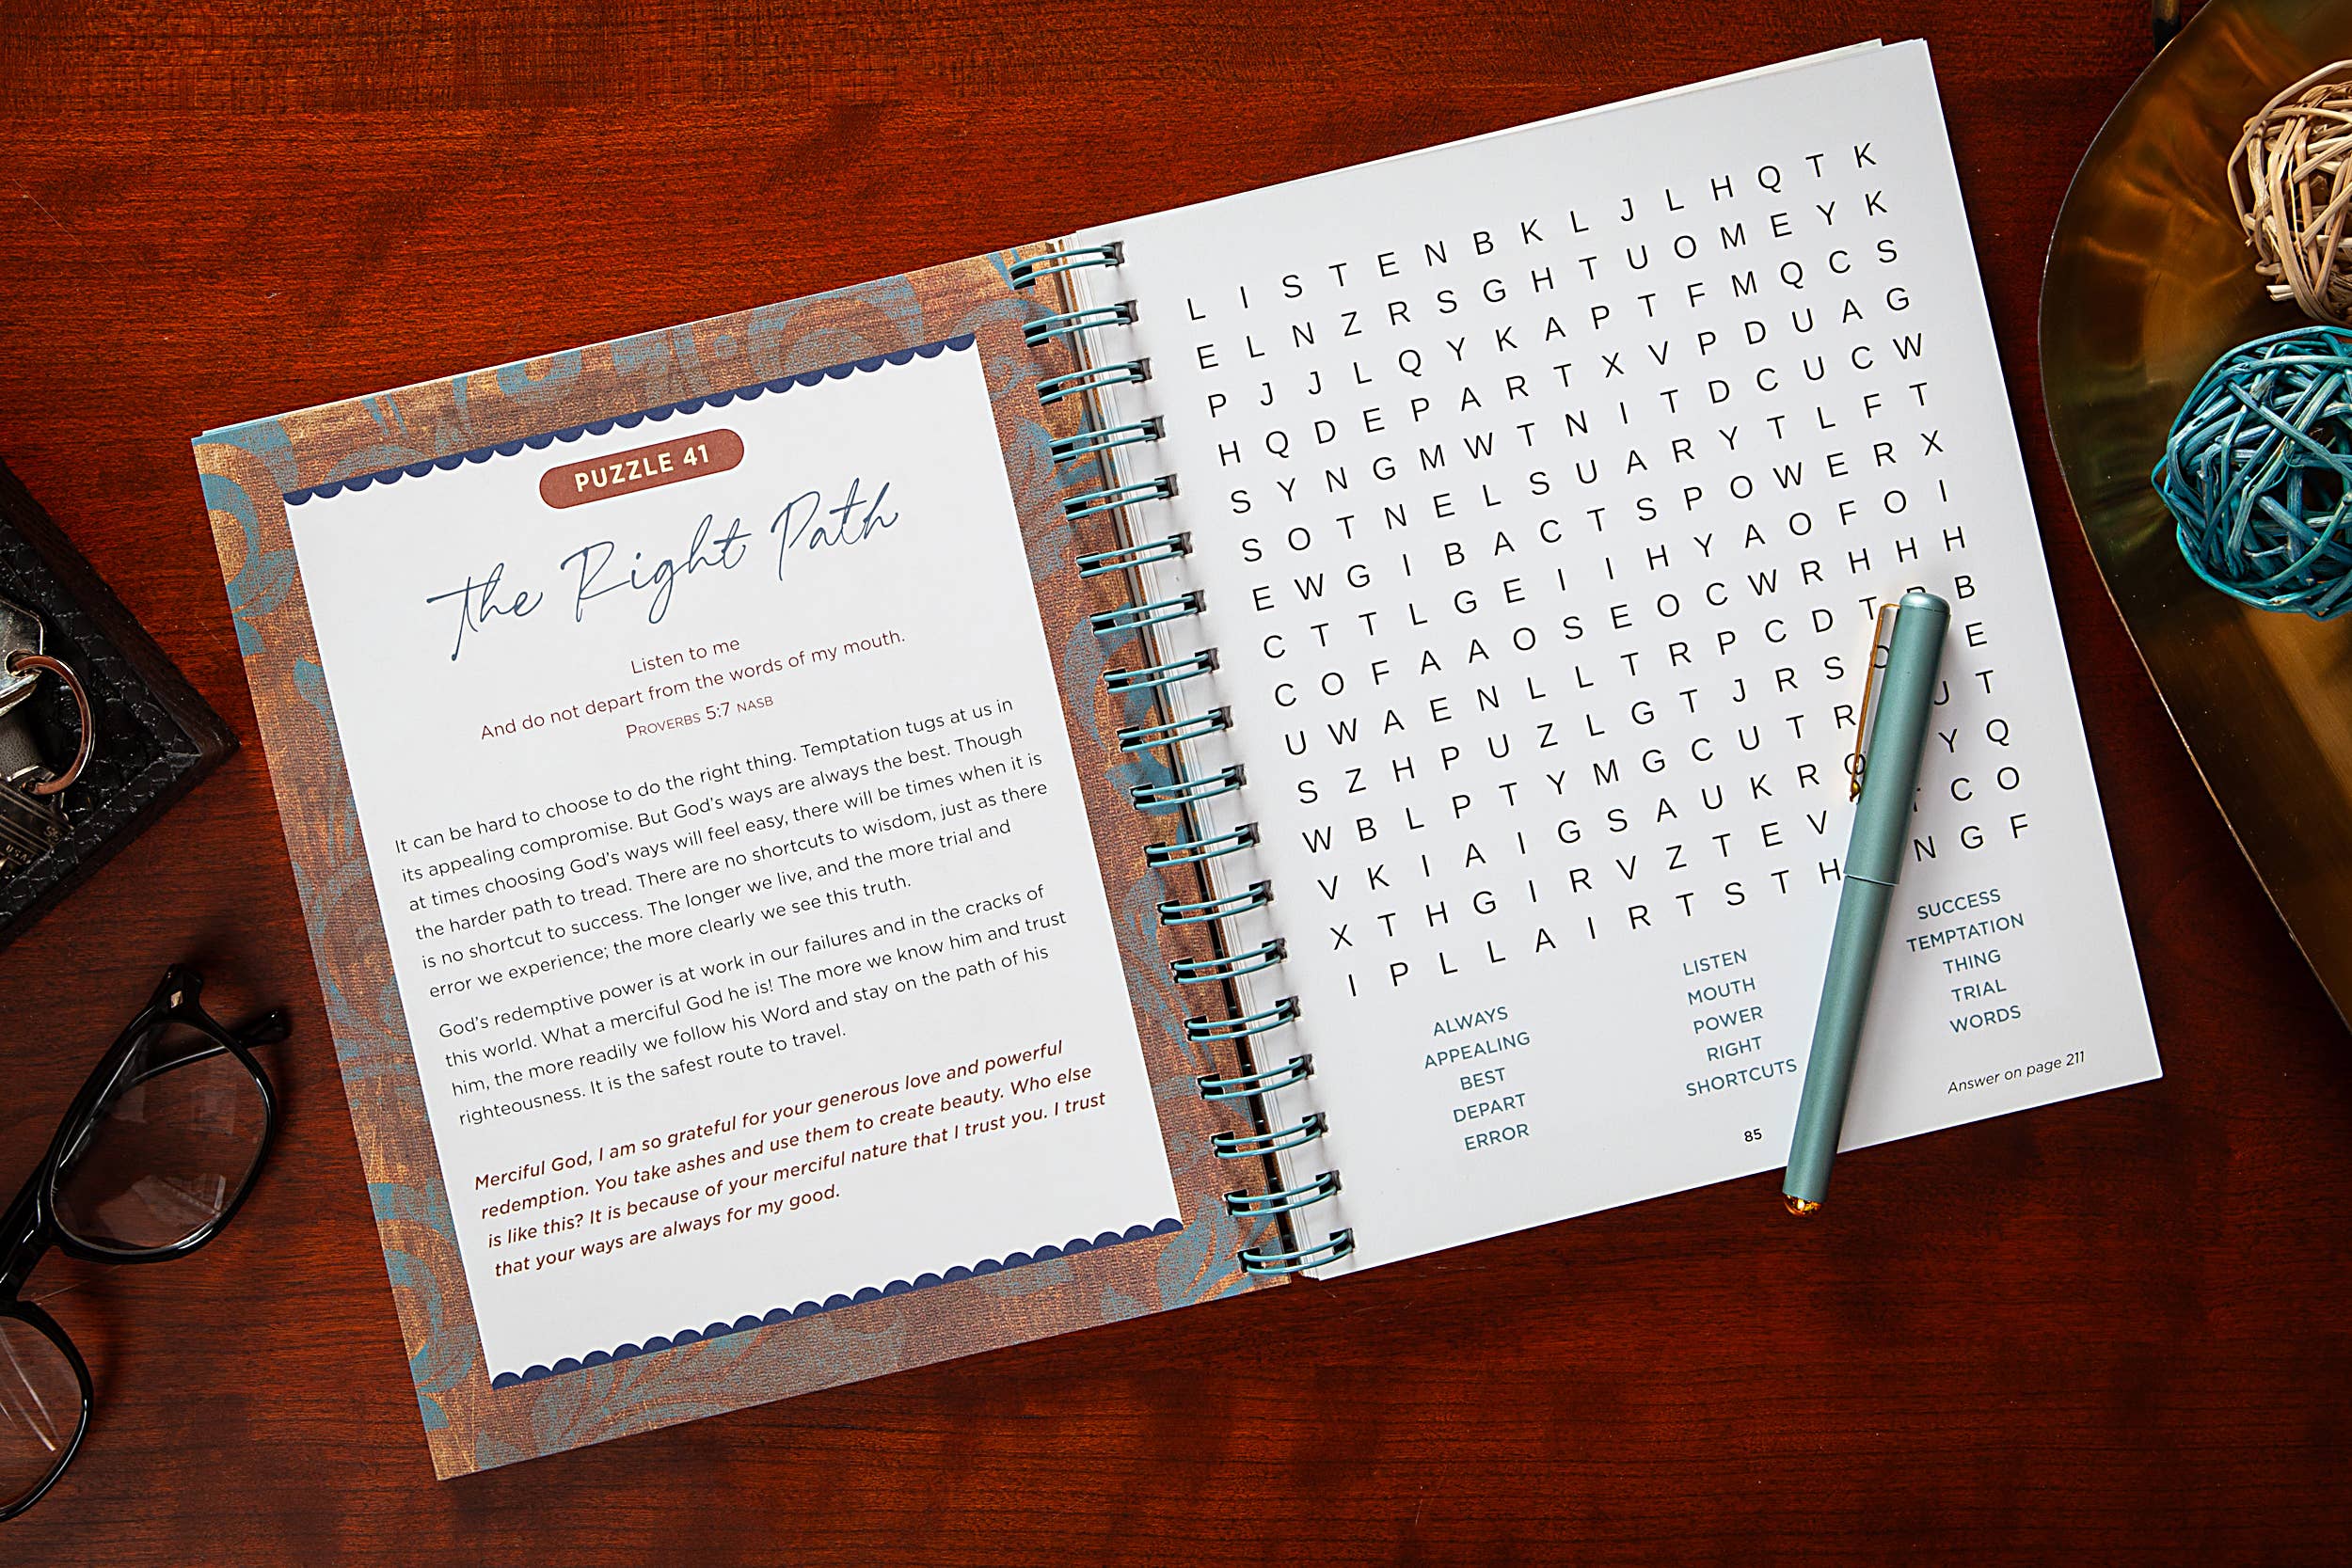 PUZZLE 41
the Right Path
Listen to me
And do not depart from the words of my mouth.
PROVERBS 5:7 NASB
It can be hard to choose to do the right thing. Temptation tugs at us in
its appealing compromise. But God's ways are always the best. Though
at times choosing God's ways will feel easy, there will be times when it is
the harder path to tread. There are no shortcuts to wisdom, just as there
is no shortcut to success. The longer we live, and the more trial and
error we experience; the more clearly we see this truth.
God's redemptive power is at work in our failures and in the cracks of
this world. What a merciful God he is! The more we know him and trust
him, the more readily we follow his Word and stay on the path of his
righteousness. It is the safest route to travel.
Merciful God, I am so grateful for your generous love and powerful
redemption. You take ashes and use them to create beauty. Who else
is like this? It is because of your merciful nature that I trust you. I trust
that your ways are always for my good.
L I S T E N B K L J L H Q T K
E L N Z R S G H T U O M E Y K
P J J L Q Y K A P T F M Q C S
H Q D E P A R T X V P D U A G
S Y N G M W T N I T D C U C W
S O T N E L S U A R Y T L F T
E W G I B A C T S P O W E R X
C T T L G E I I H Y A O F O I
C O F A A O S E O C W R H H H
U W A E N L L T R P C D T B
S Z H P U Z L G T J R S E
W B L P T Y M G C U T R U T
V K I A I G S A U K R Y Q
X T H G I R V Z T E V C O
I P L L A I R T S T H N G F
ALWAYS
APPEALING
BEST
DEPART
ERROR
LISTEN
MOUTH
POWER
RIGHT
SHORTCUTS
SUCCESS
TEMPTATION
THING
TRIAL
WORDS
Answer on page 211
85